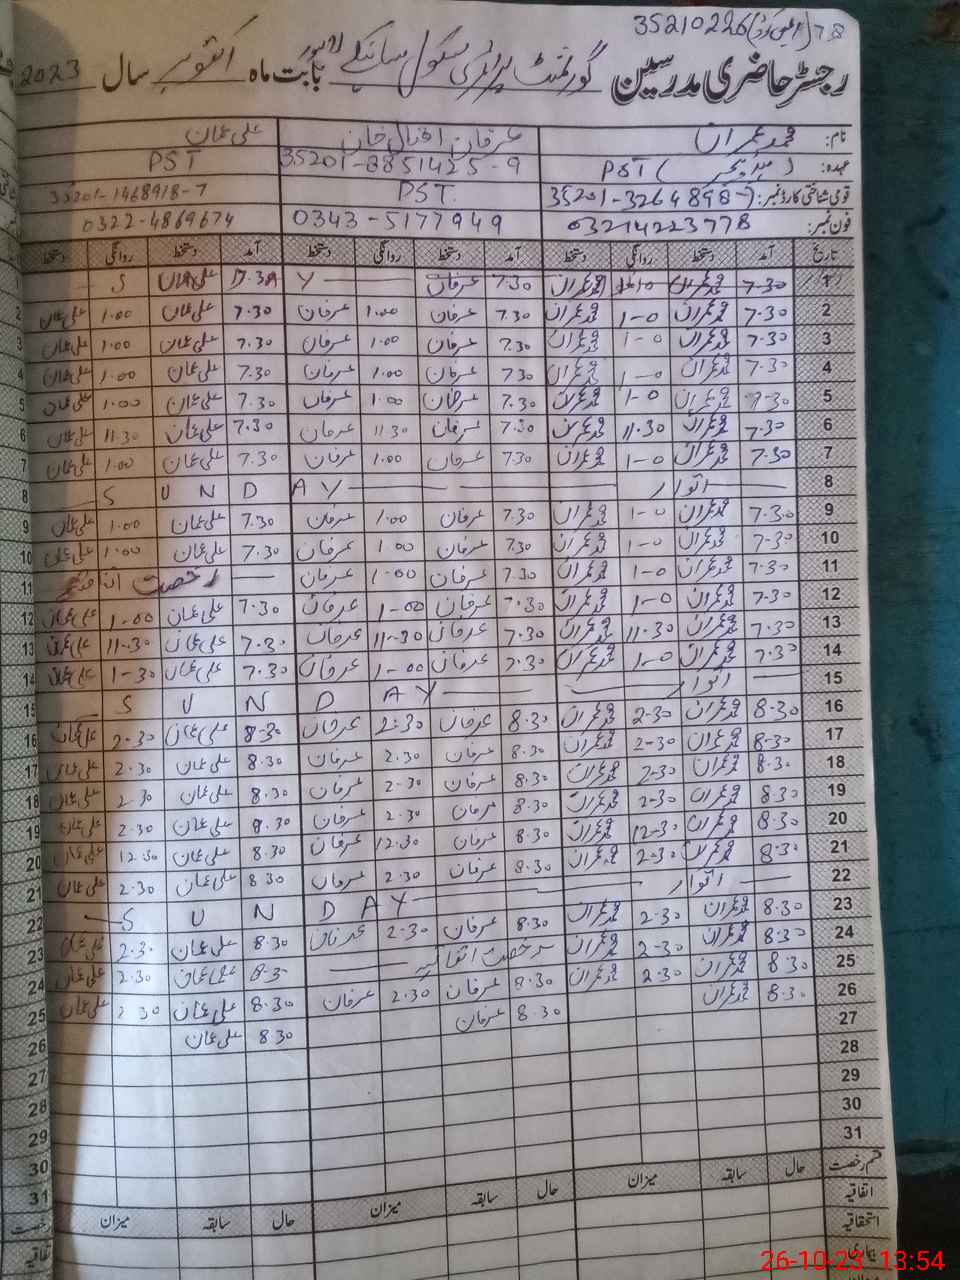 35210226 (ایمس کوڈ) 78
رجسٹر حاضری مدرسین گورنمنٹ پرائمری سکول لاہور بابت ماہ اکتوبر سال 2023
نام: محمد عمران عرفان افضال خان علی عمان
عہدہ: PST ( ہیڈ ٹیچر ) 35201-8851425-9 PST
قومی شناختی کارڈ نمبر: 35201-3264898-7 PST 35201-1468918-7
فون نمبر: 03214223778 0343-5177949 0322-4869674
تاریخ آمد دستخط روانگی دستخط آمد دستخط روانگی دستخط آمد دستخط روانگی دستخط
1 7-30 محمد عمران محمد عمران 7.30 عرفان Y علی عمان S
2 7-30 محمد عمران 1-0 محمد عمران 7.30 عرفان 1.00 عرفان 7.30 علی عمان 1.00 علی عمان 2
3 7-30 محمد عمران 1-0 محمد عمران 7.30 عرفان 1.00 عرفان 7.30 علی عمان 1.00 علی عمان 3
4 7-30 محمد عمران 1-0 محمد عمران 7.30 عرفان 1.00 عرفان 7.30 علی عمان 1.00 علی عمان 4
5 7-30 محمد عمران 1-0 محمد عمران 7.30 عرفان 1.00 عرفان 7.30 علی عمان 1.00 علی عمان 5
6 7-30 محمد عمران 11.30 محمد عمران 7.30 عرفان 11.30 عرفان 7.30 علی عمان 11.30 علی عمان 6
7 7-30 محمد عمران 1-0 محمد عمران 7.30 عرفان 1.00 عرفان 7.30 علی عمان 1.00 علی عمان 7
8 اتوار S U N D A Y 8
9 7-30 محمد عمران 1-0 محمد عمران 7.30 عرفان 1.00 عرفان 7.30 علی عمان 1.00 علی عمان 9
10 7-30 محمد عمران 1-0 محمد عمران 7.30 عرفان 1.00 عرفان 7.30 علی عمان 1.00 علی عمان 10
11 7-30 محمد عمران 1-0 محمد عمران 7.30 عرفان 1.00 عرفان رخصت اتفاقیہ 11
12 7-30 محمد عمران 1-0 محمد عمران 7.30 عرفان 1-00 عرفان 7.30 علی عمان 1-00 علی عمان 12
13 7-30 محمد عمران 11.30 محمد عمران 7.30 عرفان 11-30 عرفان 7.30 علی عمان 11-30 علی عمان 13
14 7-30 محمد عمران 1-0 محمد عمران 7.30 عرفان 1-00 عرفان 7.30 علی عمان 1-30 علی عمان 14
15 اتوار S U N D A Y 15
16 8-30 محمد عمران 2-30 محمد عمران 8.30 عرفان 2:30 عرفان 8-30 علی عمان 2.30 علی عمان 16
17 8-30 محمد عمران 2-30 محمد عمران 8.30 عرفان 2.30 عرفان 8.30 علی عمان 2.30 علی عمان 17
18 8-30 محمد عمران 2-30 محمد عمران 8.30 عرفان 2.30 عرفان 8.30 علی عمان 2.30 علی عمان 18
19 8-30 محمد عمران 2-30 محمد عمران 8.30 عرفان 2.30 عرفان 8.30 علی عمان 2.30 علی عمان 19
20 8-30 محمد عمران 12-30 محمد عمران 8.30 عرفان 12.30 عرفان 8.30 علی عمان 12.30 علی عمان 20
21 8-30 محمد عمران 2-30 محمد عمران 8.30 عرفان 2.30 عرفان 8.30 علی عمان 2.30 علی عمان 21
22 اتوار S U N D A Y 22
23 8-30 محمد عمران 2-30 محمد عمران 8.30 عرفان 2-30 عرفان 8.30 علی عمان 2.30 علی عمان 23
24 8-30 محمد عمران 2-30 محمد عمران رخصت اتفاقیہ 8.30 علی عمان 2.30 علی عمان 24
25 8-30 محمد عمران 2-30 محمد عمران 8.30 عرفان 2.30 عرفان 8.30 علی عمان 2.30 علی عمان 25
26 8-30 محمد عمران 8.30 عرفان 8.30 علی عمان 26
27 27
28 28
29 29
30 30
31 31
قسم رخصت حال سابقہ میزان حال سابقہ میزان حال سابقہ میزان رخصت
اتفاقیہ
استحقاقیہ
بیماری
26-10-23 13:54